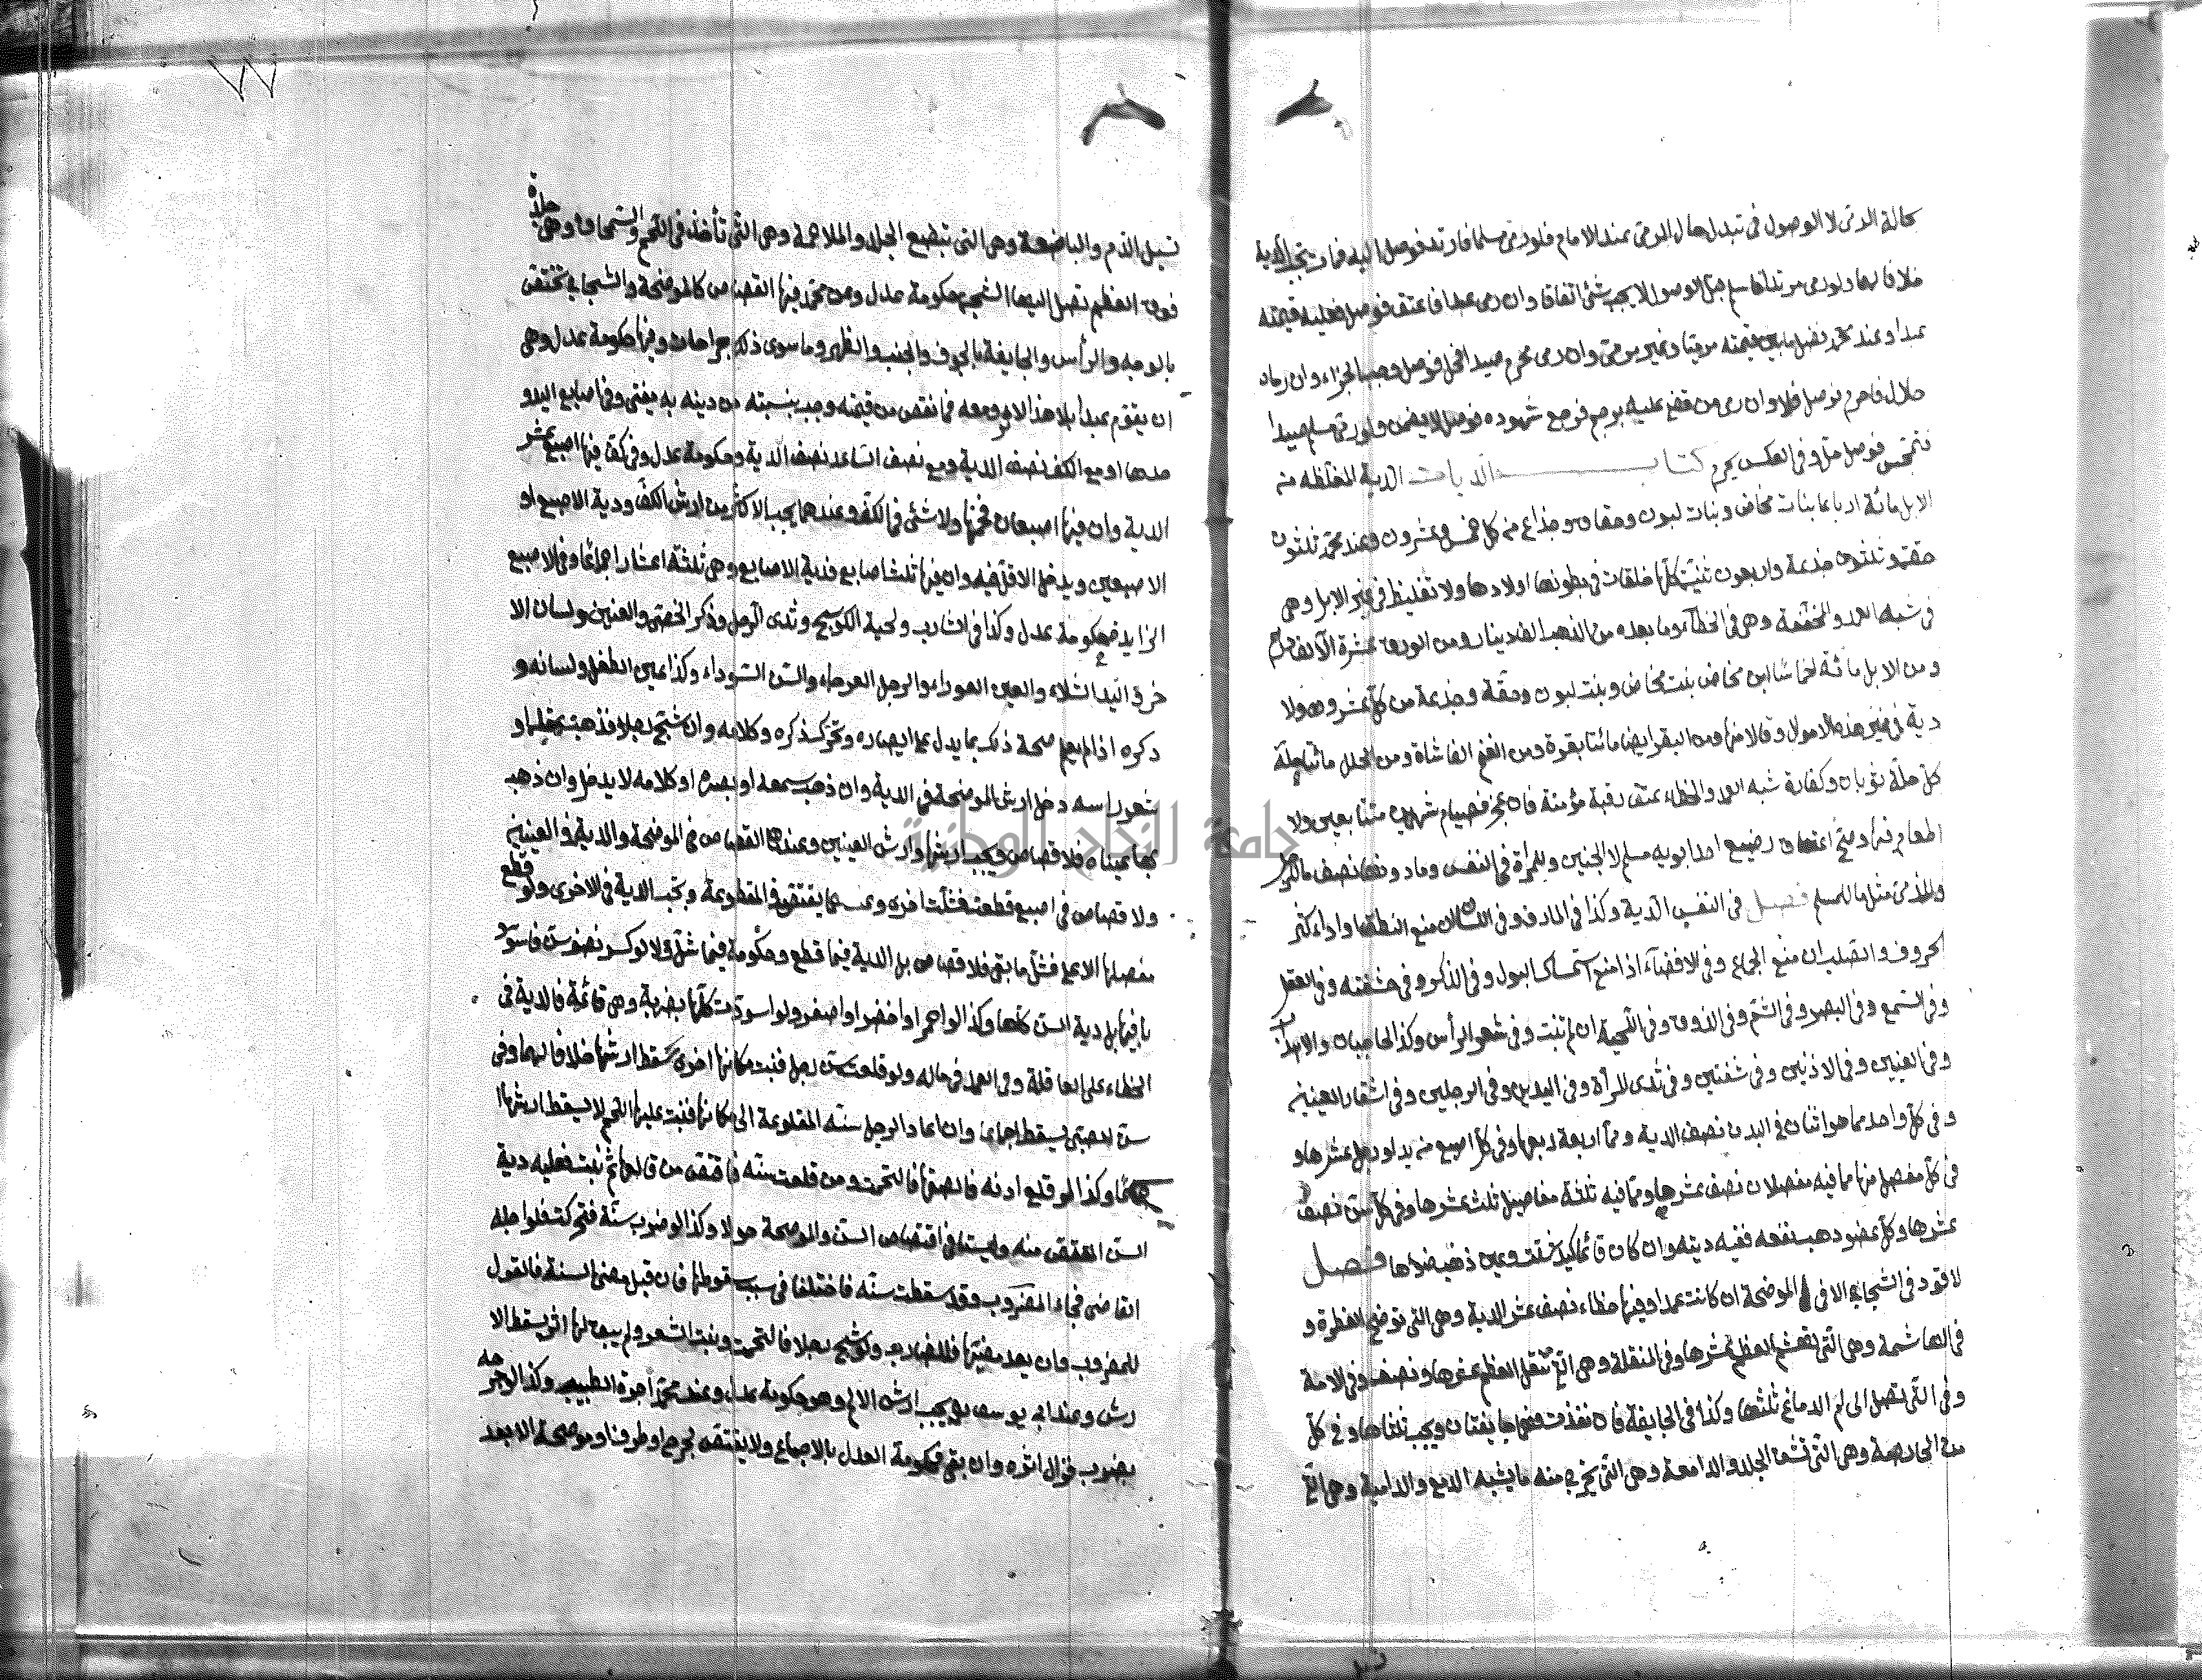 حالة الرمي لا الوصول في تبدل حال المرمي عند الامام فلو رمى مسلما فارتد فوصل اليه فمات تجب الدية
خلافا لهما ولو رمى مرتدا فاسلم قبل الوصول لا يجب شئ اتفاقا وان رمى عبدا فاعتق فوصل فعليه قيمته
عبدا وعند محمد فضل ما بين قيمته مرميا وغير مرمي وان رمى محرم صيدا فحل فوصل وجب الجزاء وان رماه
حلال فاحرم فوصل فلا وان رمى من قضي عليه برجم فرجع شهوده فوصل لا يضمن ولو رمى مسلم صيدا
فتمجس فوصل حل وفي العكس يحرم كتاب الديات الدية المغلظة من
الابل مائة ارباعا بنات مخاض وبنات لبون وحقاق وجذاع من كل خمس وعشرون وعند محمد ثلثون
حقة وثلثون جذعة واربعون ثنية كلها خلفات في بطونها اولادها ولا تغليظ في غير الابل وهي
في شبه العمد والمخففة وهي في الخطأ وما بعده من الذهب الف دينار ومن الورق عشرة الآف درهم
ومن الابل مائة اخماسا ابن مخاض بنت مخاض وبنت لبون وحقة وجذعة من كل عشرون ولا
دية في غير هذه الاموال وقالا منها ومن البقر ايضا مائتا بقرة ومن الغنم الفا شاة ومن الحلل مائتا حلة
كل حلة ثوبان وكفارة شبه العمد والخطاء عتق رقبة مؤمنة فان عجز فصيام شهرين متتابعين ولا
اطعام فيها وصح اعتاق رضيع احد ابويه مسلم لا الجنين وللمرأة في النفس وما دونها نصف ما للرجل
وللذمي مثل ما للمسلم فصل في النفس الدية وكذا في المارن وفي اللسان ان منع النطق او اداء اكثر
الحروف والصلب ان منع الجماع وفي الافضاء اذا منع استمساك البول وفي الذكر وفي حشفته وفي العقل
وفي السمع وفي البصر وفي الشم وفي الذوق وفي اللحية ان لم تنبت وفي شعر الرأس وكذا الحاجبان والاهداب
وفي العينين وفي الاذنين وفي شفتين وفي ثدى المرأة وفي اليدين وفي الرجلين وفي اشفار العينين
وفي كل واحد مما هو اثنان في البدن نصف الدية ومما اربعة ربعها وفي كل اصبع من يد او رجل عشرها و
في كل مفصل منها مما فيه مفصلان نصف عشرها ومما فيه ثلثة مفاصل ثلث عشرها وفي كل سن نصف
عشرها وكل عضو ذهب نفعه ففيه ديته وان كان قائما كيد شلت وعين ذهب ضوؤها فصل
لا قود في الشجاج الا في الموضحة ان كانت عمدا وفيها خطاء نصف عشر الدية وهي التي توضح العظم و
في الهاشمة وهي التي تهشم العظم عشرها وفي المنقلة وهي التي تنقل العظم عشرها ونصف وفي الامة
وفي التي تصل الى ام الدماغ ثلثها وكذا في الجايفة فان نفذت فهما جايفتان ويجب ثلثاها وفي كل
من الحارصة وهي التي تشق الجلد والدامعة وهي التي يخرج منه ما يشبه الدمع والدامية وهي التي
٧٧
تسيل الدم والباضعة وهي التي تبضع الجلد والملاحمة وهي التي تأخذ في اللحم والسمحاق وهي جلدة
فوق العظم تصل اليها الشجة حكومة عدل وعن محمد فيها القصاص كالموضحة والشجاج يختص
بالوجه والرأس والجايفة بالجوف والجنب والظهر وما سوى ذلك جراحات وفيها حكومة عدل وهي
ان يقوم عبدا بلا هذا الاثر ومعه فما نقص من قيمته وجب بنسبته من دينه به يفتى وفي اصابع اليد و
حدها او مع الكف نصف الدية ومع نصف الساعد نصف الدية وحكومة عدل وفي كف فيها اصبع عشر
الدية وان فيها اصبعان فخمسها ولا شئ في الكف وعندهما يجب الاكثر من ارش الكف ودية الاصبع او
الاصبعين ويدخل الاقل فيه وان فيها ثلث اصابع فدية الاصابع وهي ثلثة اعشار اجماعا وفي الاصبع
الزايد حكومة عدل وكذا في الشارب ولحية الكوسج وثدى الرجل وذكر الخصي والعنين ولسان الا
خرق اليد الشلاء والعين العوراء والرجل العرجاء والسن السوداء وكذا عين الطفل ولسانه و
ذكره اذا لم يعلم صحة ذلك بما يدل على ابصاره وتحرك ذكره وكلامه وان شج رجلا فذهب عقله او
شعر راسه دخل ارش الموضحة في الدية وان ذهب سمعه او بصره او كلامه لا يدخل وان ذهب
بها عيناه فلا قصاص ويجب ارشها وارش العينين وعندهما القصاص في الموضحة والدية في العينين
ولا قصاص في اصبع قطعت فشلت اخرى وعندهما يقتص في المقطوعة وتجب الدية في الاخرى ولو قطع
مفصلها الاعلى فشل ما بقي فلا قصاص بل الدية فيما قطع وحكومة فيما شل ولا لو كسر نصف سن فاسود
باقيها بل دية السن كلها وكذا لو احمر او اخضر او اصفر ولو اسودت كلها بضربة وهي قائمة فالدية في
الخطاء على العاقلة وفي العمد في ماله ولو قلعت سن رجل فنبت مكانها اخرى سقط ارشها خلافا لهما وفي
سن الصبي يسقط اجماعا وان اعاد الرجل سنه المقلوعة الى مكانها فنبت عليها اللحم لا يسقط ارشها ا
جماعا وكذا لو قلع اذنه فالصقها فالتحمت ومن قلعت سنه فاقتص من قالعها ثم نبت فعليه دية
السن المقتص منه ويستانى في اقتصاص السن والموضحة حولا وكذا لو ضرب سنه فتحركت فلو اجله
القاضي فجاء المضروب وقد سقطت سنه فاختلفا في سبب سقوطها فان قبل مضي السنة فالقول
للمضروب وان بعد مضيها فللضارب ولو شج رجلا فالتحمت ونبت الشعر ولم يبق لها اثر يسقط الا
رش وعند ابي يوسف يجب ارش الالم وهو حكومة عدل وعند محمد اجرة الطبيب وكذا لو جرحه
بضرب فزال اثره وان بقي فحكومة العدل بالاجماع ولا يقتص لجرح او طرف او موضحة الا بعد
جامعة النجاح الوطنية